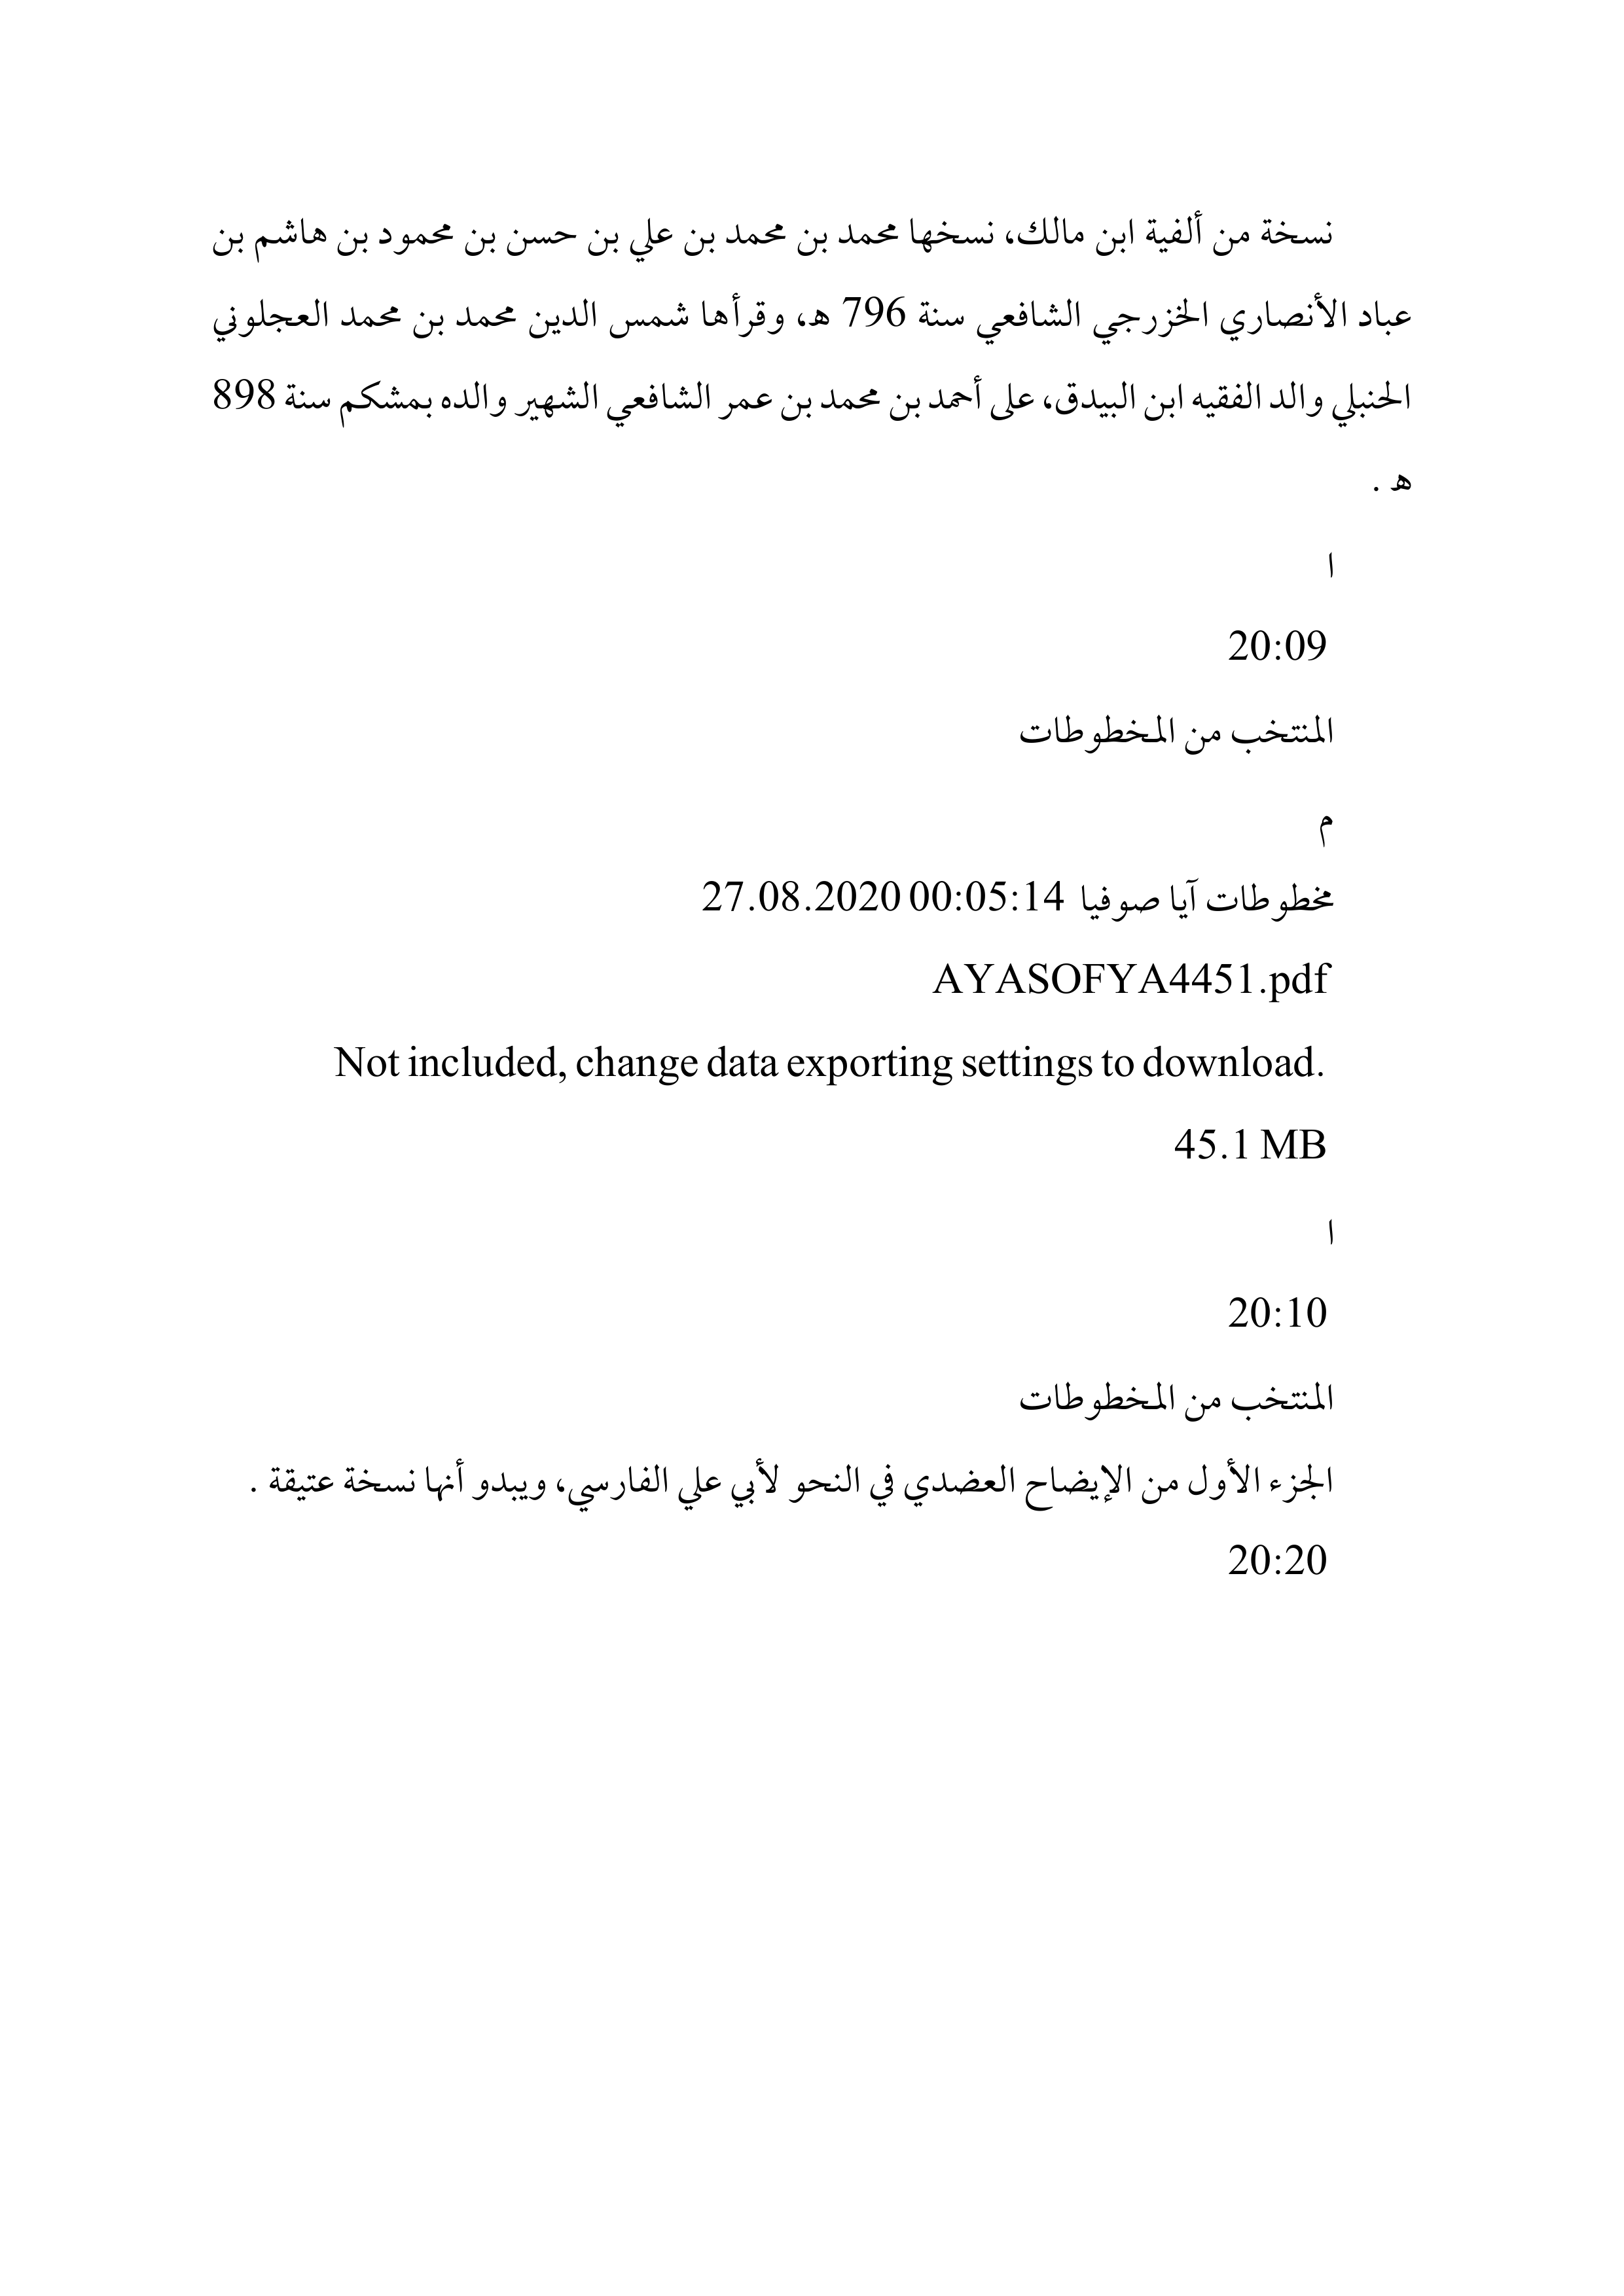 نسخة من ألفية ابن مالك، نسخها محمد بن محمد بن علي بن حسن بن محمود بن هاشم بن
عباد الأنصاري الخزرجي الشافعي سنة 796 ه، وقرأها شمس الدين محمد بن محمد العجلوني
الحنبلي والد الفقيه ابن البيدق، على أحمد بن محمد بن عمر الشافعي الشهير والده بمشكم سنة 898
ه .
ا
20:09
المنتخب من المخطوطات
م
مخطوطات آيا صوفيا 27.08.2020 00:05:14
AYASOFYA4451.pdf
Not included, change data exporting settings to download.
45.1 MB
ا
20:10
المنتخب من المخطوطات
الجزء الأول من الإيضاح العضدي في النحو لأبي علي الفارسي، ويبدو أنها نسخة عتيقة .
20:20